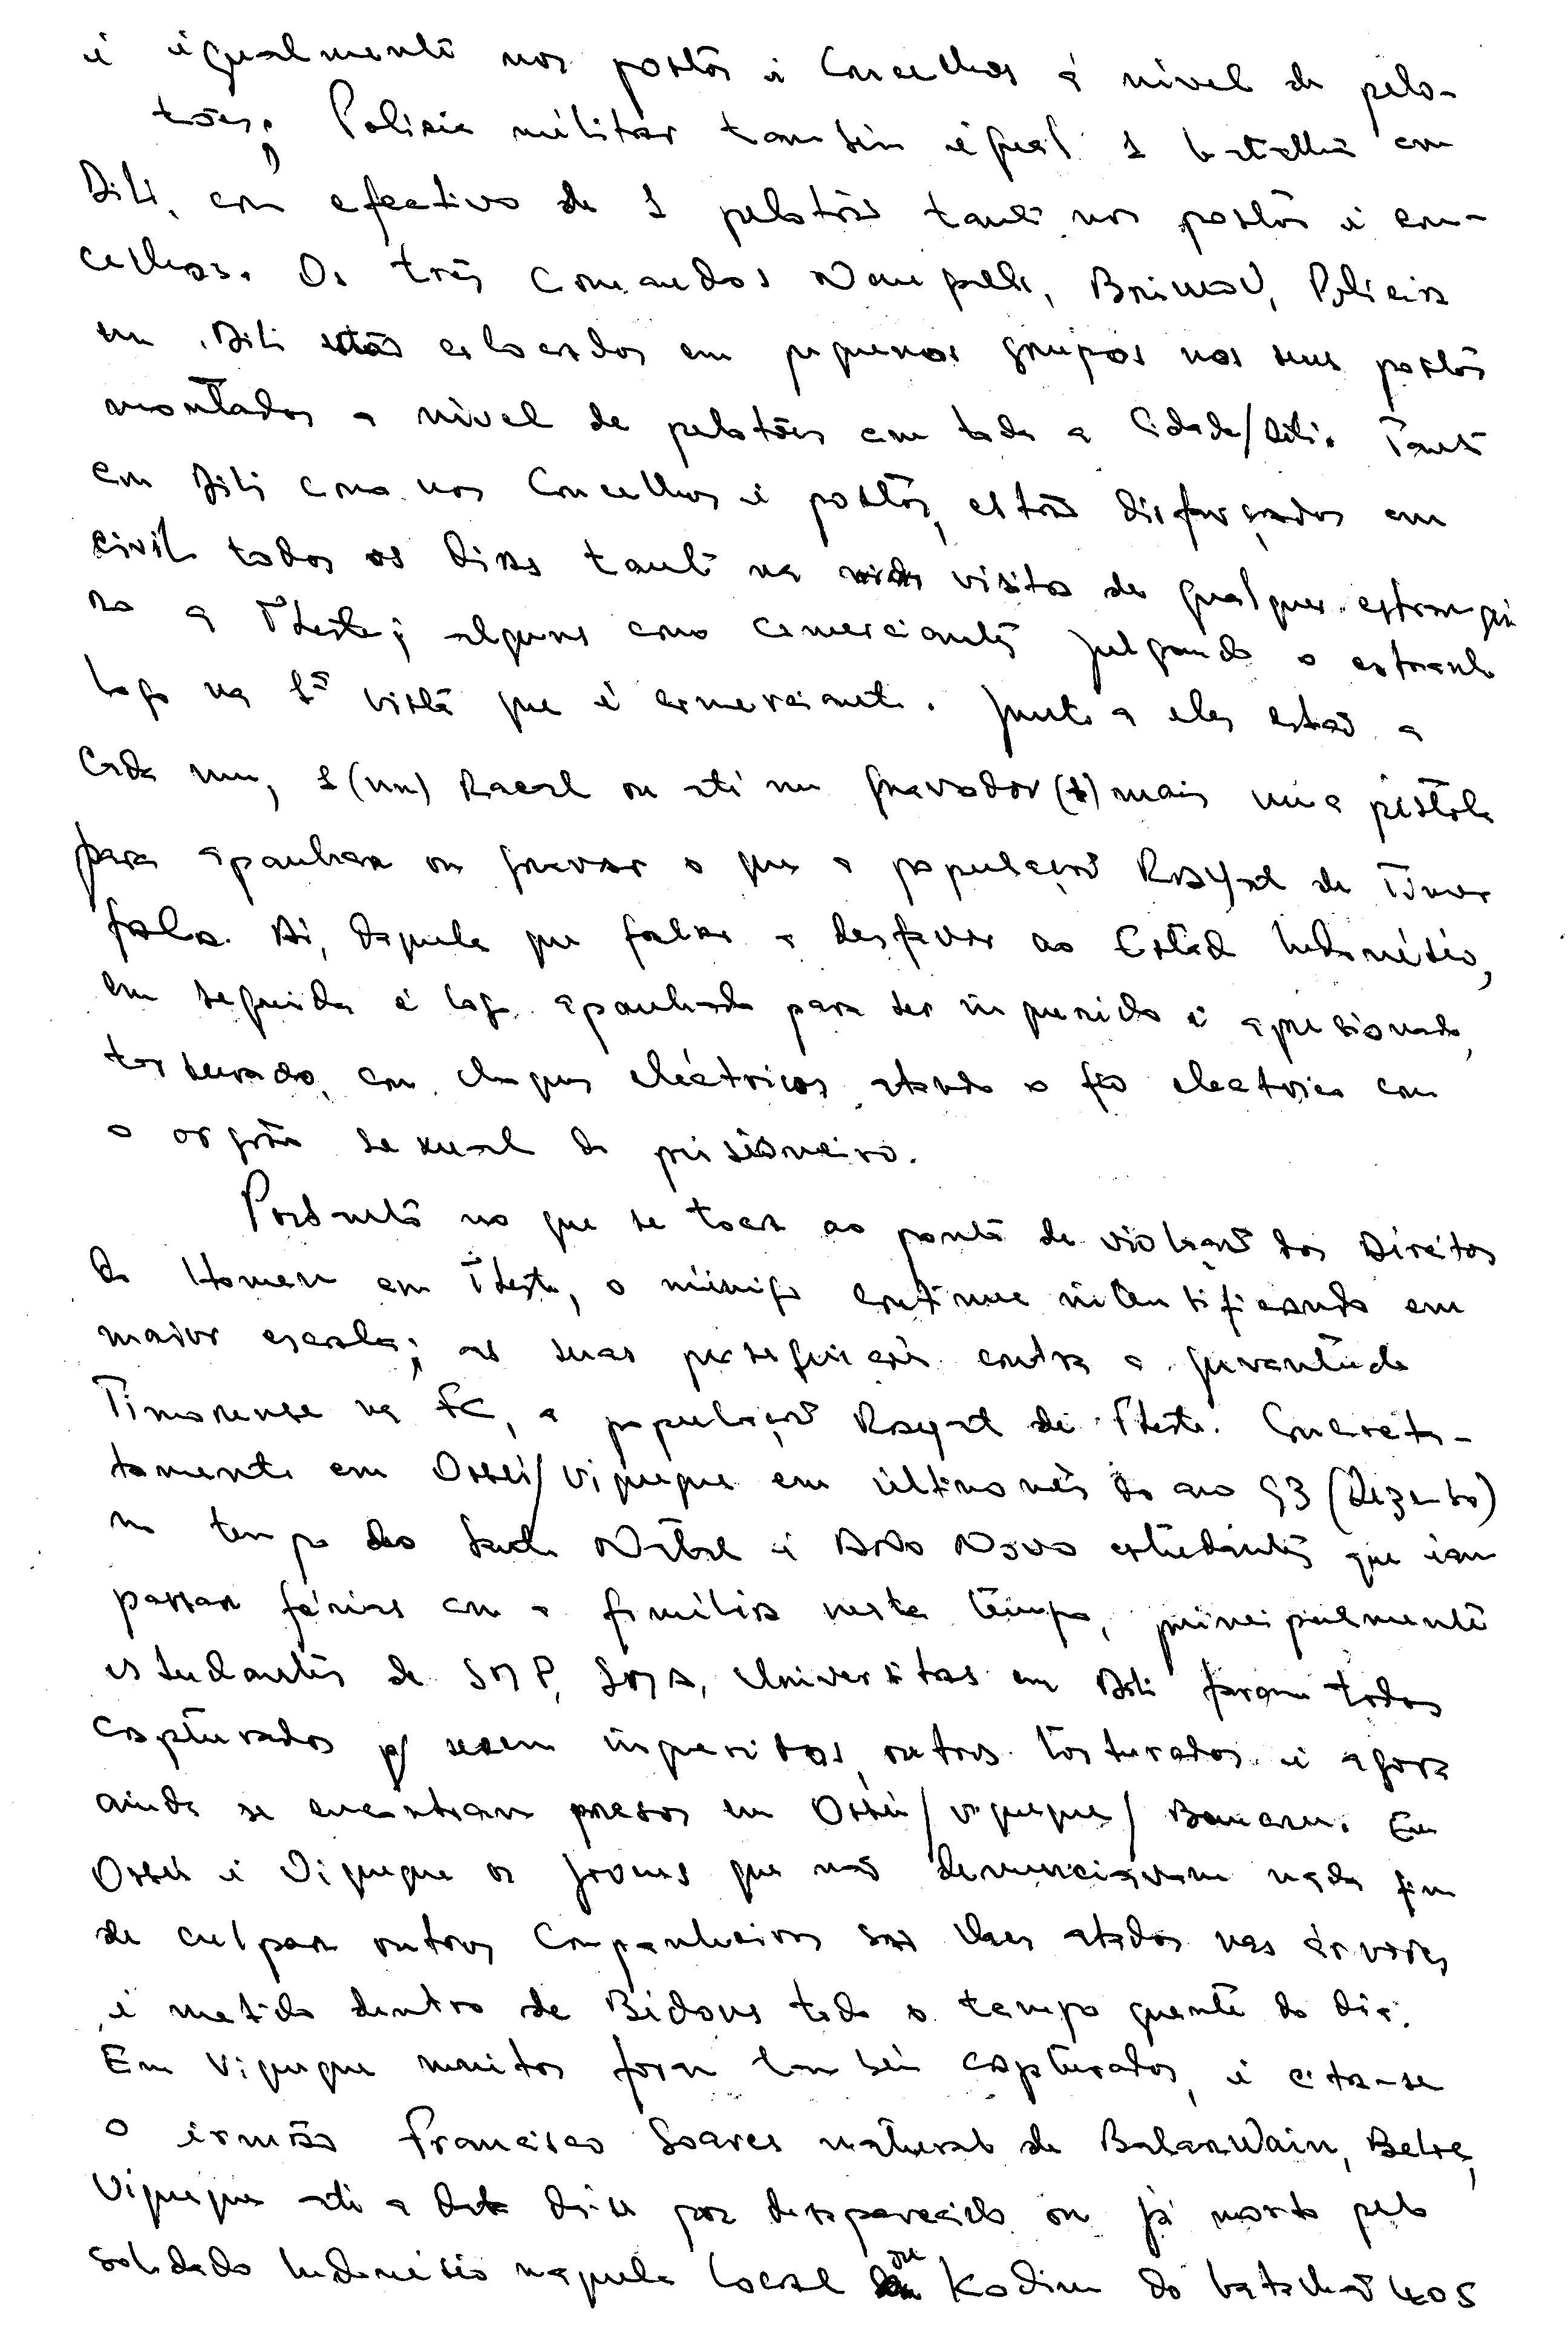 e igualmente nos postos e Concelhos a nível de pelo-
tões; Policia militar também igual 1 batalhão em
Dili, com efectivo de 1 pelotão tanto nos postos e con-
celhos. Os três Comandos Nampale, Brimob, Policia
em Dili estão colocados em pequenos grupos nos seus postos
montados a nível de pelotões em toda a Cidade/Dili. Tanto
em Dili como nos Concelhos e postos, estão disfarçados em
civil todos os dias tanto na visita de qualquer estrangei
ro a TLeste; alguns como comerciantes julgando o estranho
logo na 1ª vista que é comerciante. Junto a eles estão a
Cada um, 1 (um) Racal ou até um gravador (1) mais uma pistola
para apanhar ou gravar o que a população Rayat de Timor
fala. Aí, daquele que falar a desfavor ao Estado Indonésio,
em seguida é logo apanhado para ser inquerido e aprisionado,
torturado, com choques eléctricos atando o fio electrico com
o orgão sexual do prisioneiro.
Portanto no que se toca ao ponto de violação dos Direitos
do Homem em TLeste, o inimigo continua intensificando em
maior escala; as suas perseguições contra a juventude
Timorense na FC, a população Rayat de TLeste. Concreta-
tamente em Ossú/Viqueque em último mês do ano 93 (Dezembro)
no tempo do Santo Natal e Ano Novo estudantes que iam
passar férias com a família neste tempo, principalmente
estudantes de SMP, SMA, Universitas em Dili foram todos
capturados p/ serem inqueridos, outros torturados e agora
ainda se encontram presos em Ossú/Viqueque/Baucau. Em
Ossú e Viqueque os jovens que não denunciavam nada fim
de culpar outros Companheiros são atados nas árvores
e metido dentro de Bidons todo o tempo quente do dia.
Em Viqueque muitos foram também capturados, e cita-se
o irmão Francisco Soares natural de BalarWain,
Viqueque até a data dá-se por desaparecido ou já morto pelo
Soldado Indonésio naquele local ou Kodim do batalhão 405